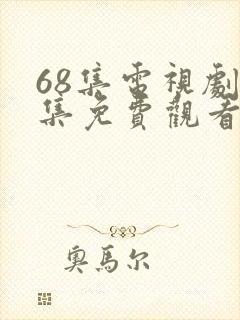 68集電視劇
集免費觀看
奧馬尔